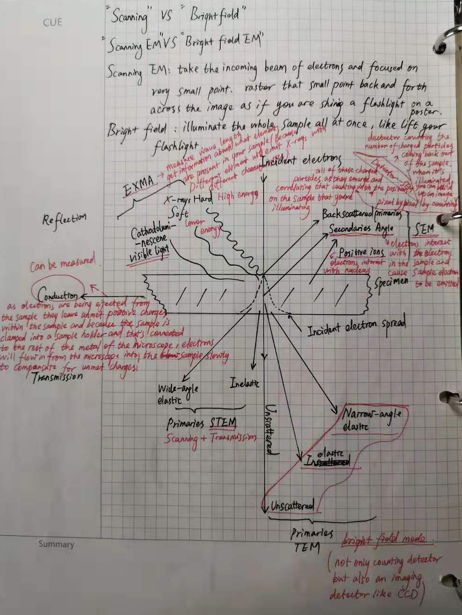 CUE
"Scanning" VS "Bright field"
"Scanning EM" VS "Bright field EM"
Scanning EM: take the incoming beam of electrons and focused on
very small point. raster that small point back and forth
across the image as if you are shing a flashlight on a
poster.
Bright field: illuminate the whole sample all at once, like lift your
flashlight
EXMA → measure wave
get information about what elements
are present in your sample, because
Different element will emit X-rays with
different
Incident electrons
detector counting the
number of charged particles
coming out
of the sample
when it's
pixel by pixel by scanning
all of those charged
particles, as they emerge and
correlating that counting with the
on the sample that you're
illuminating
Reflection
X-rays Hard High energy
Soft
Lower
energy
Cathodolumi-
nescene
visible light
Backscattered primaries
Secondaries Angle
Positive ions
electrons interact
with nucleus
SEM
electrons interact
with the electrons
in the sample and
cause sample electron
to be emitted
Specimen
Can be measured
Conduction
as electrons are being ejected from
the sample they leave almost positive charges
within the sample and because the sample is
clamped into a sample holder and that's connected
to the rest of the metal of the microscope, electrons
will flow in from the microscope into the sample slowly
to compensate for unmet charges.
Incident electron spread
Transmission
Wide-angle
elastic
Inelastic
Primaries STEM
Scanning + Transmission
Unscattered
Narrow-angle
elastic
elastic
Unscattered
Primaries
TEM
bright field mode.
(not only counting detector
but also an imaging
detector like CCD)
Summary